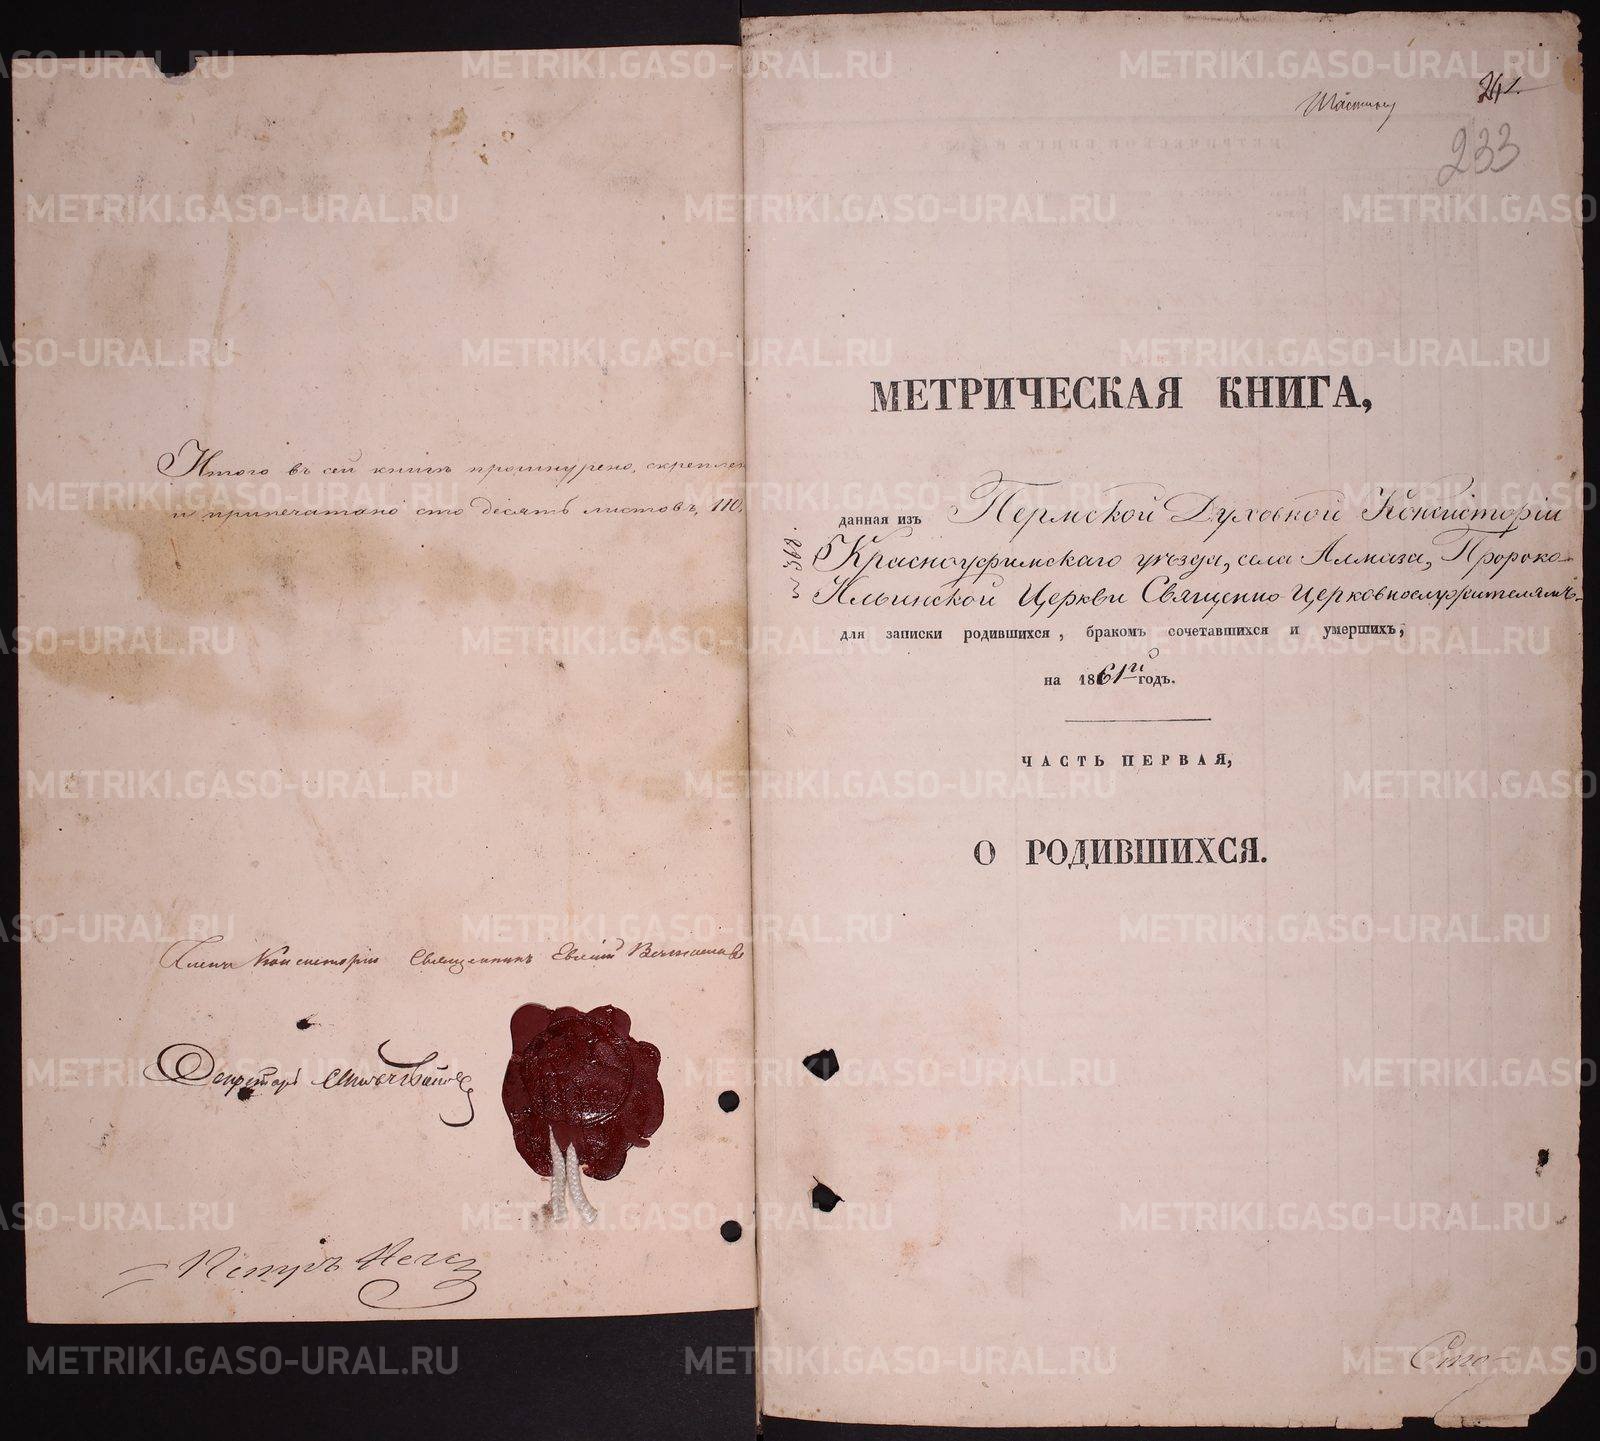 Итого въ сей книгѣ прошнурено, скреплен
и припечатано сто десять листовъ, 110.
Членъ Консисторіи Священникъ Евгеній
Секретарь
Петръ
241.
233
МЕТРИЧЕСКАЯ КНИГА,
данная изъ Пермской Духовной Консисторіи
Красноуфимскаго уѣзда, села Алмаза, Пророко-
Ильинской Церкви Священно-церковнослужителямъ
для записки родившихся, бракомъ сочетавшихся и умершихъ,
на 1861й годъ.
ЧАСТЬ ПЕРВАЯ,
О РОДИВШИХСЯ.
METRIKI.GASO-URAL.RU